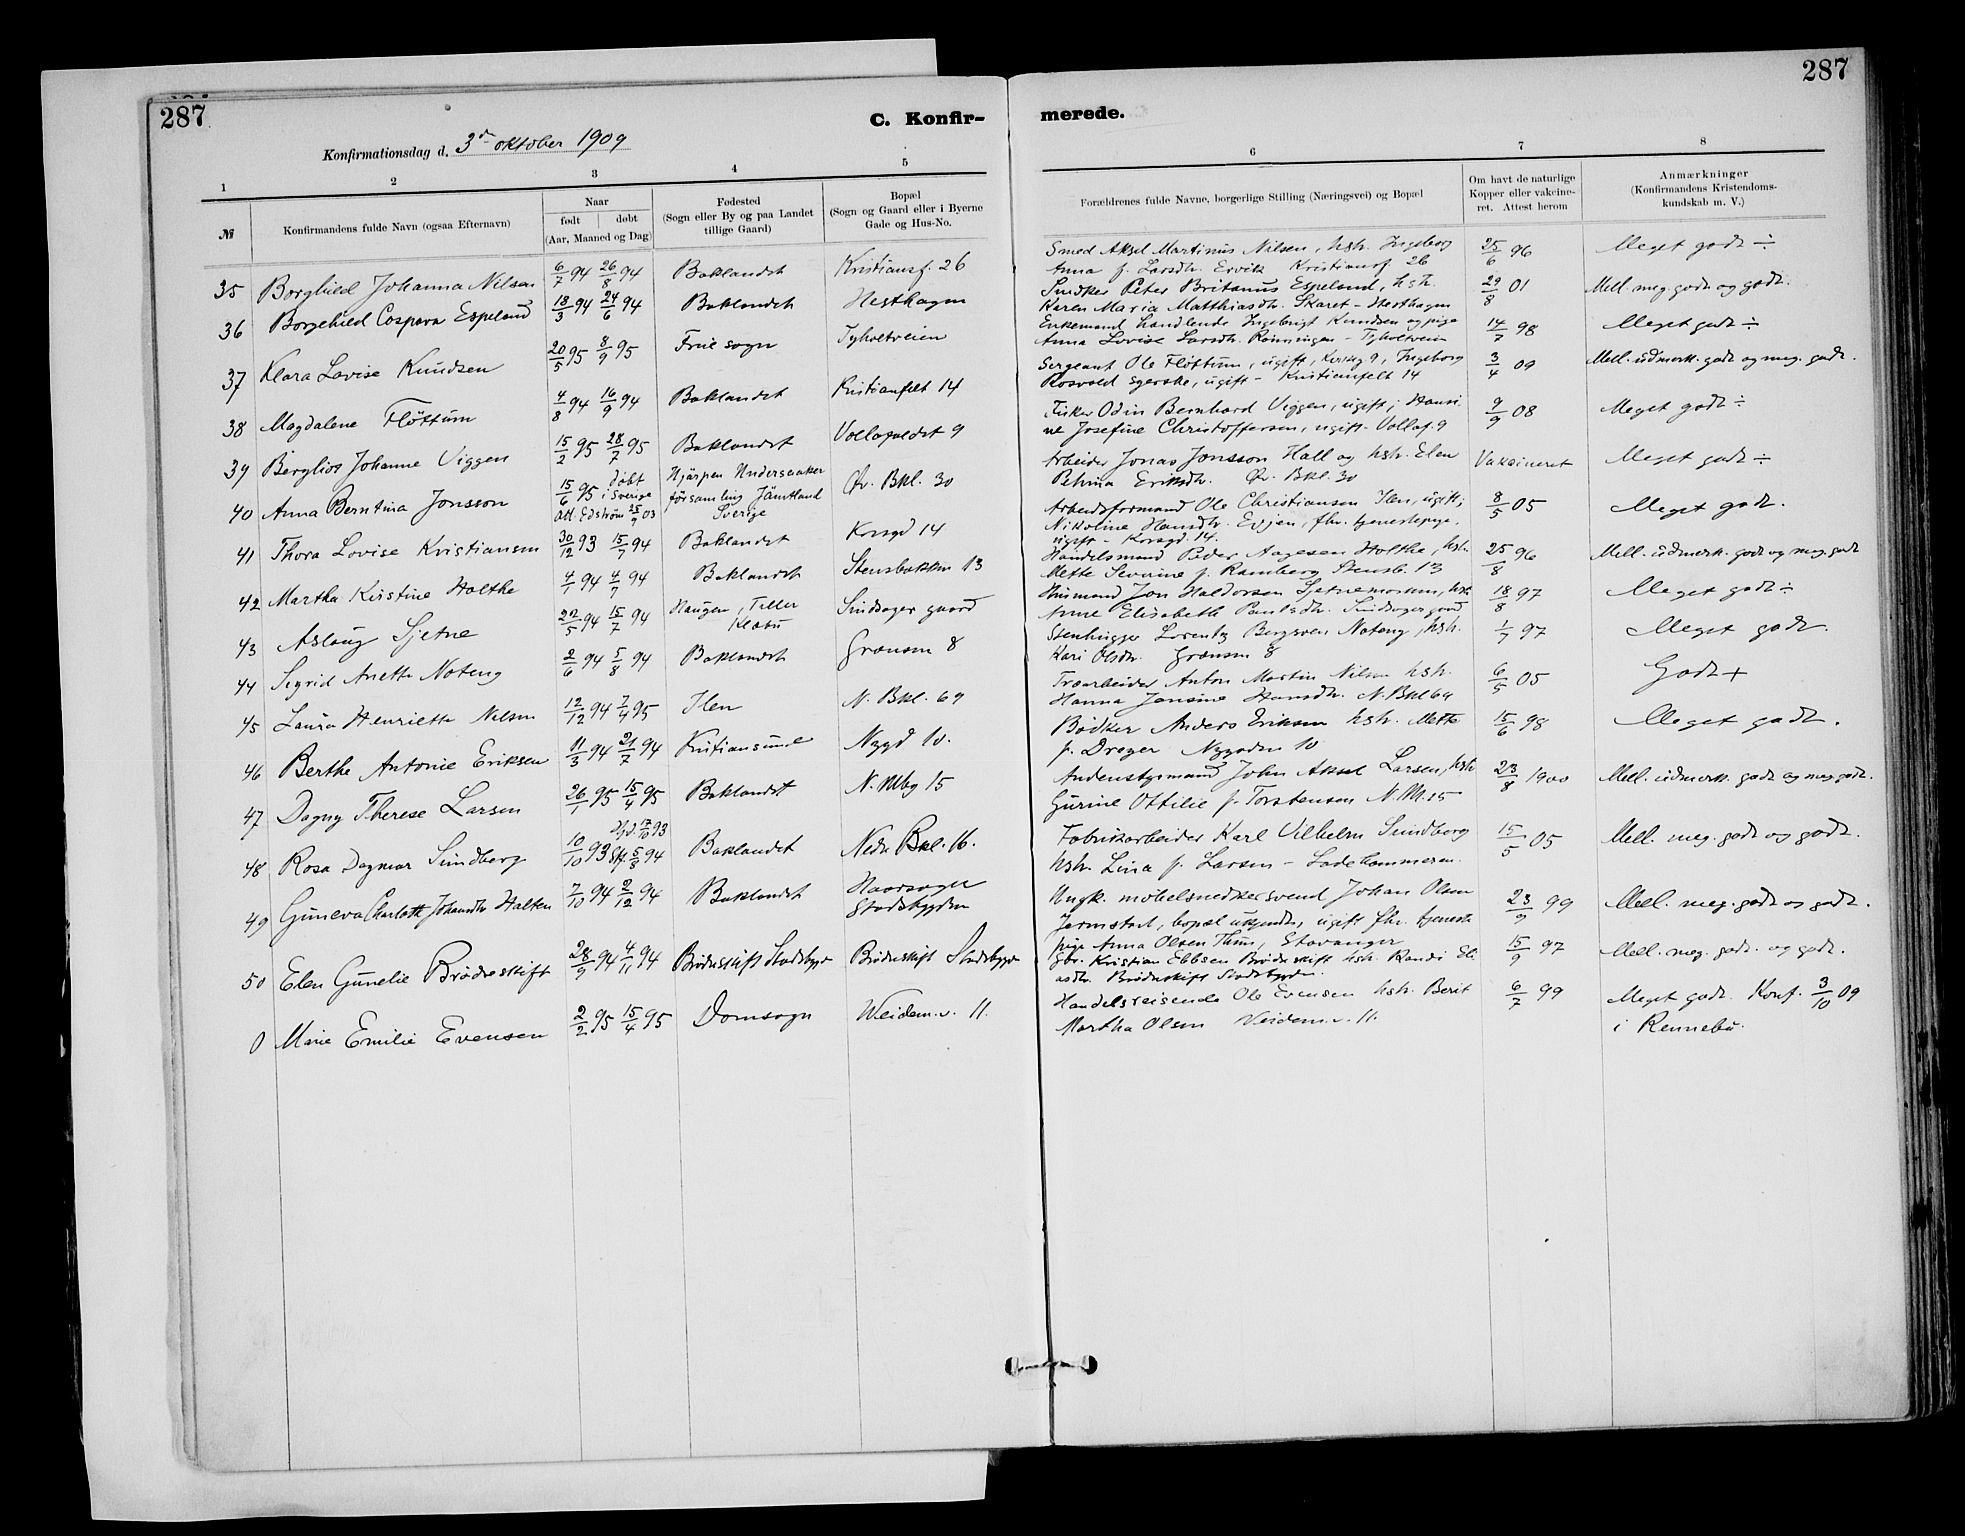 287
287
C. Konfir-
merede.
Konfirmationsdag d. 3de oktober 1909
1 2 3 4 5 6 7 8
№
Konfirmandens fulde Navn (ogsaa Efternavn)
Naar
født døbt
(Aar, Maaned og Dag)
Fødested
(Sogn eller By og paa Landet
tillige Gaard)
Bopæl
(Sogn og Gaard eller i Byerne
Gade og Hus-No.
Forældrenes fulde Navne, borgerlige Stilling (Næringsvei) og Bopæl
Om havt de naturlige
Kopper eller vakcine-
ret. Attest herom
Anmærkninger
(Konfirmandens Kristendoms-
kundskab m. V.)
35 Borghild Johanna Nilsen 6/7 94 26/8 94 Baklandet Kristiansf. 26
Smed Aksel Martinus Nilsen, hsh. Ingeborg 25/6 96 Meget godt ÷
Anna f. Larsdtr. Ervik Kristiansf 26
36 Borghild Caspara Espeland 18/3 94 24/6 94 Baklandet Hesthagen
Snedker Peter Britanus Espeland, hsh. 29/8 01 Mell. meg. godt og godt.
Karen Maria Matthiasdtr. Skaret - Hesthagen
37 Klara Lovise Knudsen 20/5 95 8/9 95 Frue sogn Tyholtveien
Enkemand handlende Ingebrigt Knudsen og pige 14/7 98 Meget godt ÷
Anna Lovise Larsdtr. Rønningen - Tyholtveien
38 Magdalene Fløttum 4/8 94 16/9 94 Baklandet Kristianfelt 14
Sergeant Ole Fløttum, ugift, Korsg 9, Ingeborg 3/4 09 Mell. udmerk. godt og meg. godt.
Rosvold syerske, ugift - Kristianfelt 14
39 Bergliot Johanne Viggen 15/2 95 28/7 95 Baklandet Vollafaldet 9
Fisker Odin Bernhard Viggen, ugift; Hansi- 9/9 08 Meget godt ÷
ne Josefine Christoffersen, ugift - Vollaf. 9
40 Anna Berntina Jonsson 15/6 95 døbt i Sverige Att. Edstrøm 25/9 03 Hjärpen Undersaaker församling Jämtland Sverige Øv. Bkl. 30
Arbeider Jonas Jonsson Hall og hsh. Elen Vakcineret Meget godt ÷
Petrina Eriksdtr. Øv. Bkl. 30
41 Thora Lovise Kristiansen 30/12 93 15/7 94 Baklandet Korsgd 14
Arbeidsformand Ole Christiansen Ilen, ugift; 8/5 05 Meget godt.
Nikoline Hansdtr. Evjen, fhv. tjenestepige,
ugift - Korsgd. 14.
42 Martha Kirstine Holthe 4/1 94 4/7 94 Baklandet Stensbakken 13
Handelsmand Peder Aagesen Holthe, hsh. 25/8 96 Mell. udmerk. godt og meg. godt
Mette Sevrine f. Ramberg Stensb. 13
43 Aslaug Sjetne 22/5 94 15/7 94 Haugen, Tiller Klæbu Sindsager gaard
Husmand Jon Haldorsen Sjetnemarken, hsh. 18/8 97 Meget godt ÷
Anne Elisabeth Paulsdtr. Sindsager gaard
44 Sigrid Anette Noteng 2/6 94 5/8 94 Baklandet Grænsen 8
Stenhugger Lorentz Bergsven Noteng, hsh. 1/7 97 Meget godt.
Kari Olsdtr. Grænsen 8
45 Laura Henriette Nilsen 12/12 94 7/4 95 Ilen N. Bkl. 69
Træarbeider Anton Martin Nilsen hsh. 6/5 05 Godt +
Hanna Jensine Hansdtr. N. Bkl 69
46 Berthe Antonie Eriksen 11/3 94 21/7 94 Kristiansund Nygd 10.
Bødker Anders Eriksen hsh. Mette 15/6 98 Meget godt.
f. Drager Nygaden 10
47 Dagny Therese Larsen 26/1 95 15/4 95 Baklandet N. Mbg 15
Andenstyrmand John Aksel Larsen, hsh 23/8 1900 Mell. udmerk. godt og meg. godt.
Gurine Ottilie f. Torstensen N. M. 15
48 Rosa Dagmar Sundberg 10/10 93 Hjd. 17/10 93 Stf. 5/8 94 Baklandet Nedr. Bkl. 16.
Fabrikarbeider Karl Vilhelm Sundberg 15/5 05 Mell. meg. godt og godt.
hsh. Lina f. Larsen - Ladehammeren.
49 Guneva Charlotte Johansdtr Halten 7/10 94 2/12 94 Baklandet Haarsager Stadsbygden
Ungk. møbelsnedkersvend Johan Olsen 23/9 99 Mell. meg. godt og godt.
Jermstad, bopæl ukjendt, ugift fhv. tjeneste
pige Anna Olsen Thun, Stavanger
50 Elen Gunelie Brødreskift 28/9 94 4/11 94 Brødreskift Stadsbygd Brødreskift Stadsbygd
Gbr. Kristian Ebbsen Brødreskift hsh. Randi Eli- 15/9 97 Mell. meg. godt. og godt.
asdtr. Brødreskift Stadsbygden.
0 Marie Emilie Evensen 2/2 95 15/4 95 Domsogn Weidem.v. 11.
Handelsreisende Ole Evensen hsh. Berit 6/7 99 Meget godt. Konf. 3/10 09
Martha Olsen Weidem.v. 11. i Rennebo.